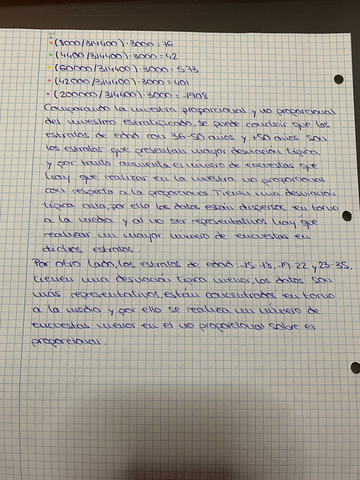 2º
• (8000/314400)·3000=76
• (4400/314400)·3000=42
• (60000/314400)·3000=573
• (42000/314400)·3000=401
• (200000/314400)·3000=1908
Comparando la muestra proporcional y no proporcional
del muestreo estratificado, se puede concluir que los
estratos de edad con 36-50 años y +50 años son
los estratos que presentan mayor desviación típica
y por tanto aumenta el número de encuestas que
hay que realizar en la muestra no proporcional
con respecto a la proporcional. Tienen una desviación
típica alta, por ello los datos están dispersos en torno
a la media y al no ser representativos hay que
realizar un mayor número de encuestas en
dichos estratos.
Por otro lado, los estratos de edad: 15-18, 19-22 y 23-35,
tienen una desviación típica menor, los datos son
más representativos, están concentrados en torno
a la media y por ello se realiza un número de
encuestas menor en el no proporcional sobre el
proporcional.